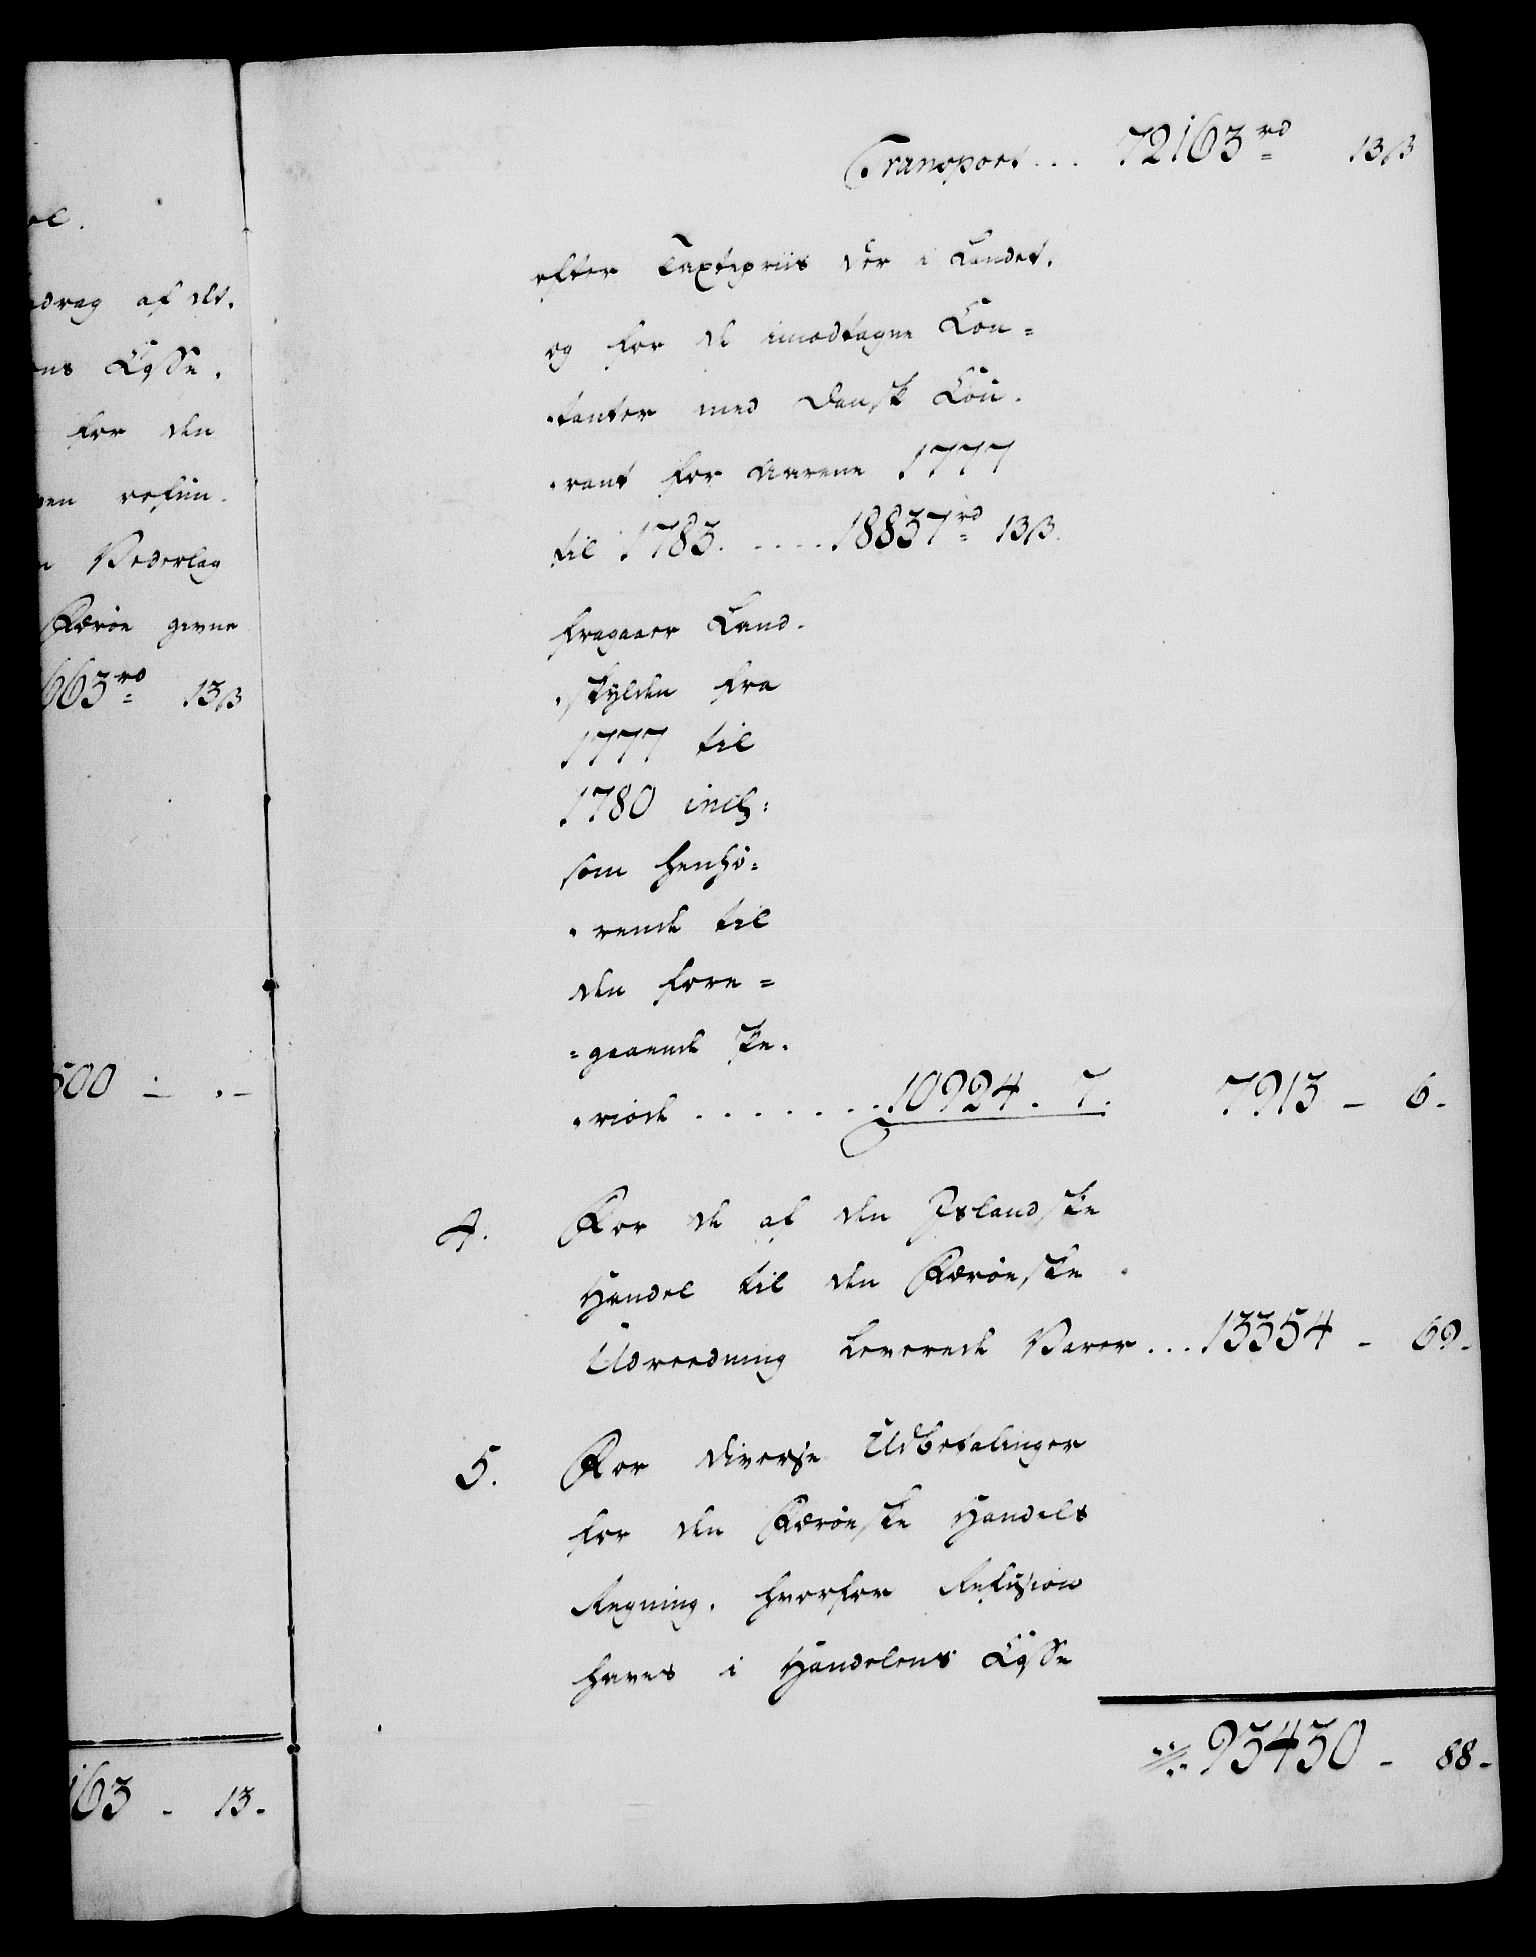 el.
adrag af det.
ens Casse.
for den
ven refun-
n Vederlag
Færøe givne
663 rd 13 ß
500 - . -
163 - 13.
Transport... 72163 rd 13 ß
efter Taxtpriis der i Landet.
og for de imodtagne Con=
-tanter med Dansk Cou-
-rant for Aarene 1777
til 1783. .... 18837 rd 13 ß.
fragaaer Land-
-skylden fra
1777 til
1780 incl:
som henhø=
-rende til
den fore=
=gaaende Pe-
-riode ....... 10924. 7. 7913 - 6.
4. For de af den Islandske
Handel til den Færøeske
Udreedning leverede Varer... 13354 - 69.
5. For diverse Udbetalinger
for den Færøeske Handels
Regning, hvorfor Refusion
haves i Handelens Casse
93430 - 88.